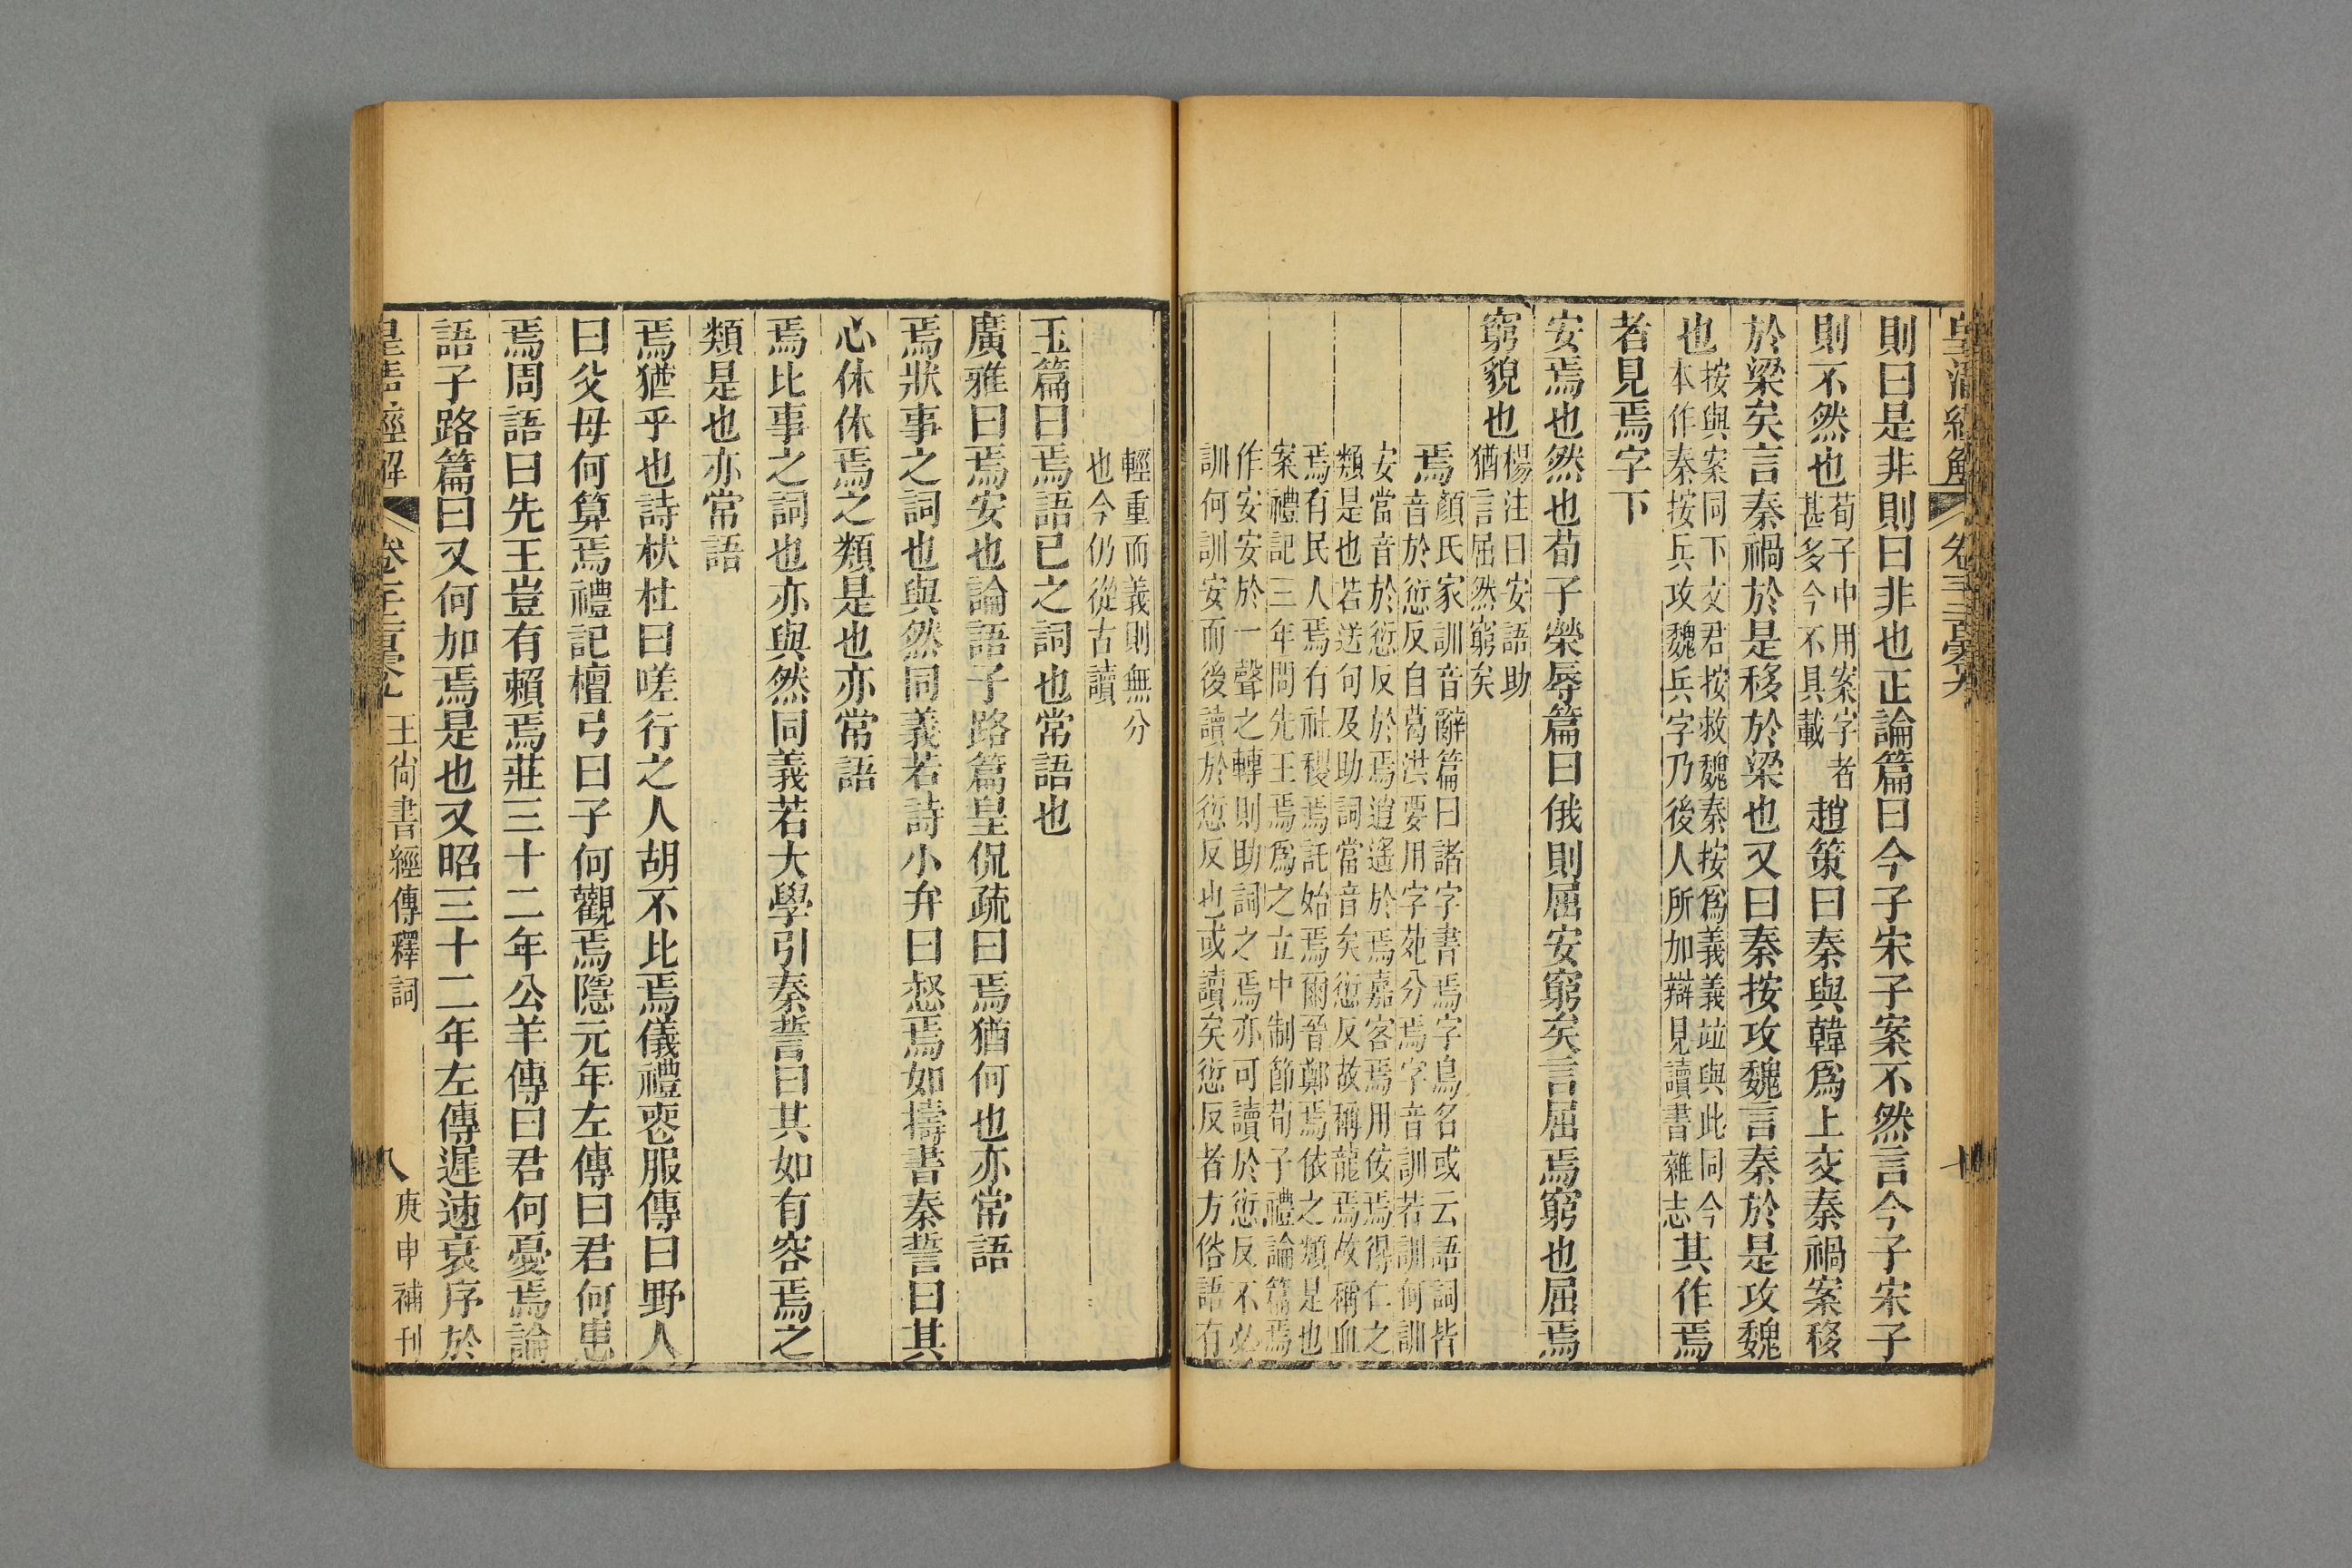 則曰是非則曰非也正論篇曰今子宋子案不然言今子宋子
則不然也荀子中用案字者甚多今不具載趙策曰秦與韓爲上交秦禍案移
於梁矣言秦禍於是移於梁也又曰秦按攻魏言秦於是攻魏
也按與案同下文君按救魏秦按爲義義竝與此同今本作秦按兵攻魏兵字乃後人所加辯見讀書雜志其作焉
者見焉字下
安焉也然也荀子榮辱篇曰俄則屈安窮矣言屈焉窮也屈焉
窮貌也楊注曰安語助猶言屈然窮矣
焉顏氏家訓音辭篇曰諸字書焉字鳥名或云語詞皆
音於愆反自葛洪要用字苑分焉字音訓若訓何訓
安當音於愆反於焉逍遙於焉嘉客焉用佞焉得仁之
類是也若送句及助詞當音矣愆反故稱龍焉故稱血
焉有民人焉有社稷焉託始焉爾晉鄭焉依之類是也
案禮記三年問先王焉爲之立中制節荀子禮論篇焉
作安安於一聲之轉則助詞之焉亦可讀於愆反不必
訓何訓安而後讀於愆反也或讀矣愆反者方俗語有
輕重而義則無分
也今仍從古讀
玉篇曰焉語已之詞也常語也
廣雅曰焉安也論語子路篇皇侃疏曰焉猶何也亦常語
焉狀事之詞也與然同義若詩小弁曰惄焉如擣書秦誓曰其
心休休焉之類是也亦常語
焉比事之詞也亦與然同義若大學引秦誓曰其如有容焉之
類是也亦常語
焉猶乎也詩杕杜曰嗟行之人胡不比焉儀禮喪服傳曰野人
曰父母何算焉禮記檀弓曰子何觀焉隱元年左傳曰君何患
焉周語曰先王豈有賴焉莊三十二年公羊傳曰君何憂焉論
語子路篇曰又何加焉是也又昭三十二年左傳遲速衰序於
皇清經解 王尚書經傳釋詞 八 庚申補刊